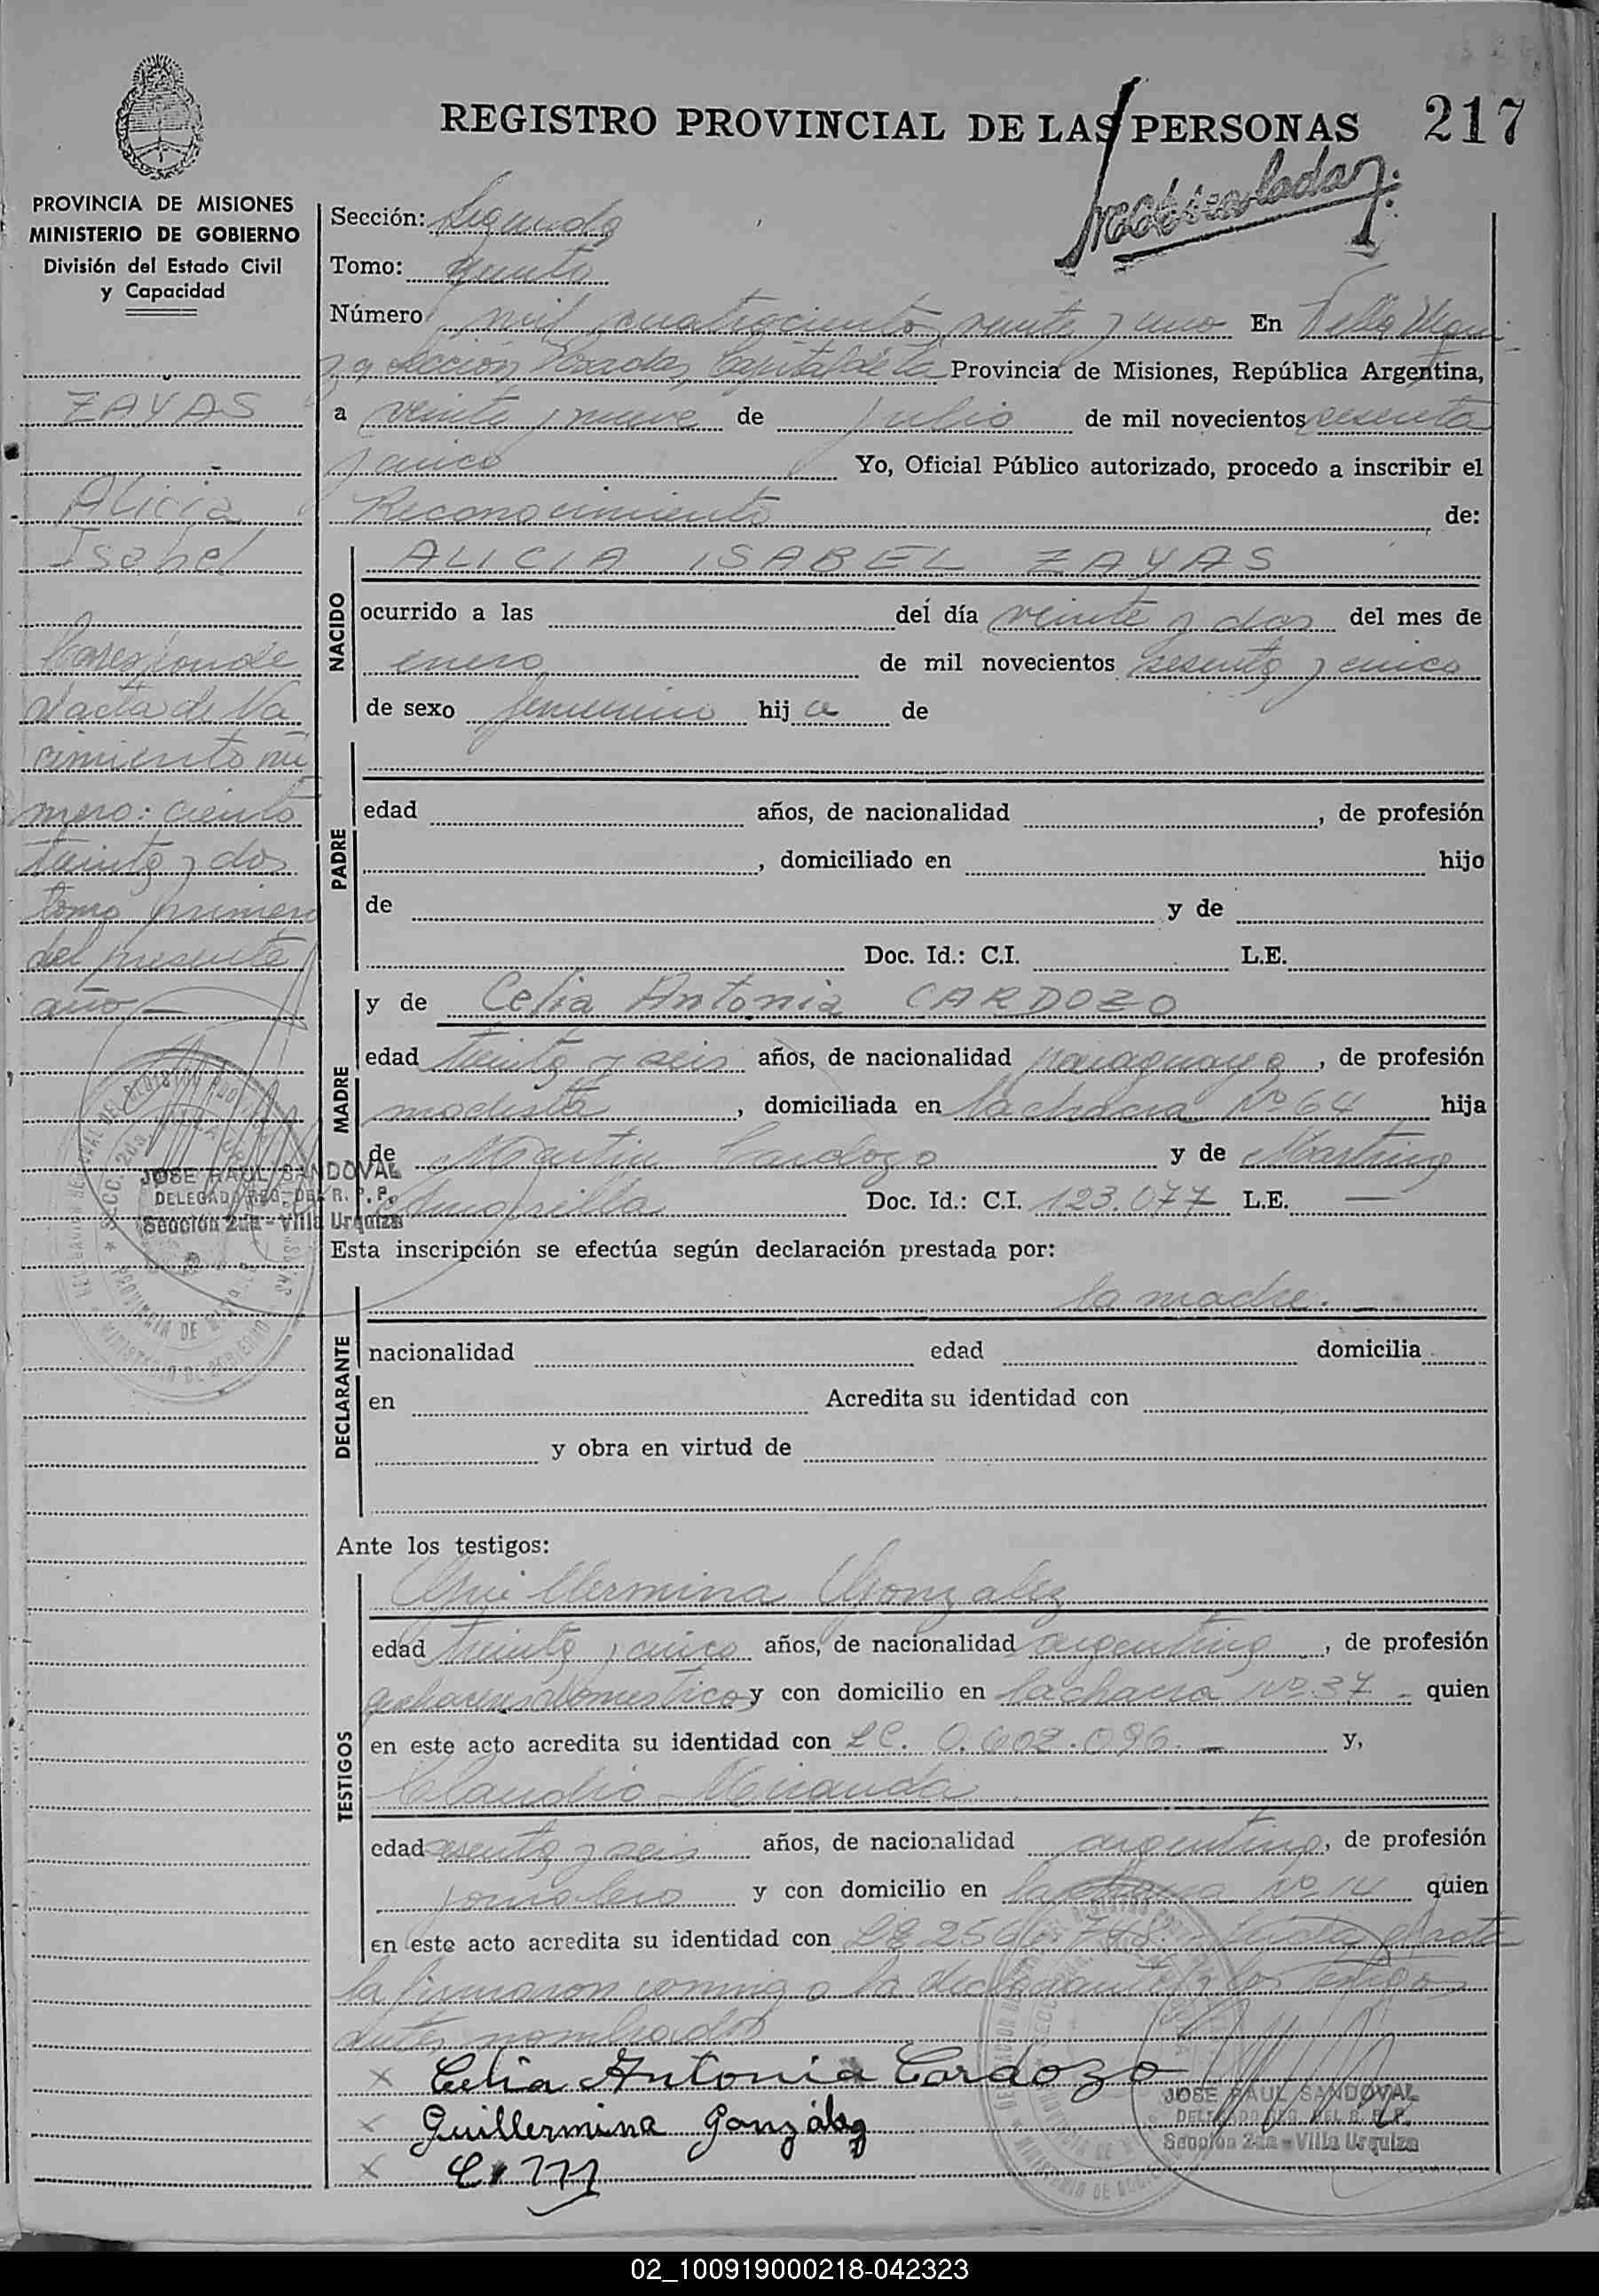 REGISTRO PROVINCIAL DE LAS PERSONAS 217
Matriculada
PROVINCIA DE MISIONES
MINISTERIO DE GOBIERNO
División del Estado Civil
y Capacidad
ZAYAS
Alicia
Isabel
Corresponde
al acta de Na
cimiento nú
mero: ciento
treinta y dos
tomo primero
del presente
año
JOSE RAUL SANDOVAL
DELEGADO REG. DEL R. P. P.
Sección 2da - Villa Urquiza
Sección: Segunda
Tomo: quinto
Número mil cuatrocientos veinte y uno En Villa Urqui
za Sección Posadas, Capital de la Provincia de Misiones, República Argentina,
a veinte y nueve de julio de mil novecientos sesenta
y cinco Yo, Oficial Público autorizado, procedo a inscribir el
Reconocimiento de:
NACIDO
ALICIA ISABEL ZAYAS
ocurrido a las del día veinte y dos del mes de
enero de mil novecientos sesenta y cinco
de sexo femenino hij a de
PADRE
edad años, de nacionalidad , de profesión
, domiciliado en hijo
de y de
Doc. Id.: C.I. L.E.
MADRE
y de Celia Antonia CARDOZO
edad treinta y seis años, de nacionalidad paraguaya, de profesión
modista, domiciliada en la chacra Nº 64 hija
de Martin Cardozo y de Martina
Doc. Id.: C.I. 123.077 L.E. —
Esta inscripción se efectúa según declaración prestada por:
DECLARANTE
la madre. —
nacionalidad edad domicilia
en Acredita su identidad con
y obra en virtud de
Ante los testigos:
TESTIGOS
Guillermina Gonzalez
edad treinta y cinco años, de nacionalidad argentina, de profesión
quehaceres domestico y con domicilio en la chacra Nº 37 quien
en este acto acredita su identidad con LC. 0.602.096. — y,
Claudio Miranda
edad sesenta y seis años, de nacionalidad argentino, de profesión
jornalero y con domicilio en la chacra Nº 14 quien
en este acto acredita su identidad con LE 2566.748. Leida el acta
la firmaron conmigo la declarante y los testigos
antes nombrados
x Celia Antonia Cardozo
x Guillermina González
x C. M
JOSE RAUL SANDOVAL
DELEGADO REG. DEL R. P. P.
Sección 2da - Villa Urquiza
02_100919000218-042323